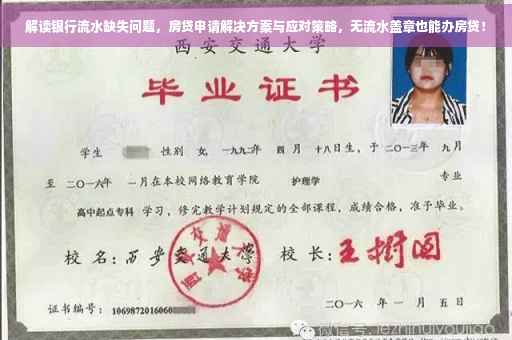 解读银行流水缺失问题，房贷申请解决方案与应对策略，无流水盖章也能办房贷！
西安交通大学
毕业证书
学生 性别 女，一九九二年 四月 十八日生，于 二〇一三年 九月
至 二〇一六年 一月在本校网络教育学院 护理学 专业
高中起点专科 学习，修完教学计划规定的全部课程，成绩合格，准予毕业。
校名：西安交通大学 校长：王树国
西安交通大学
证书编号：1069872016060
二〇一六年 一月五日
微信号: jezhihuiyoujiao